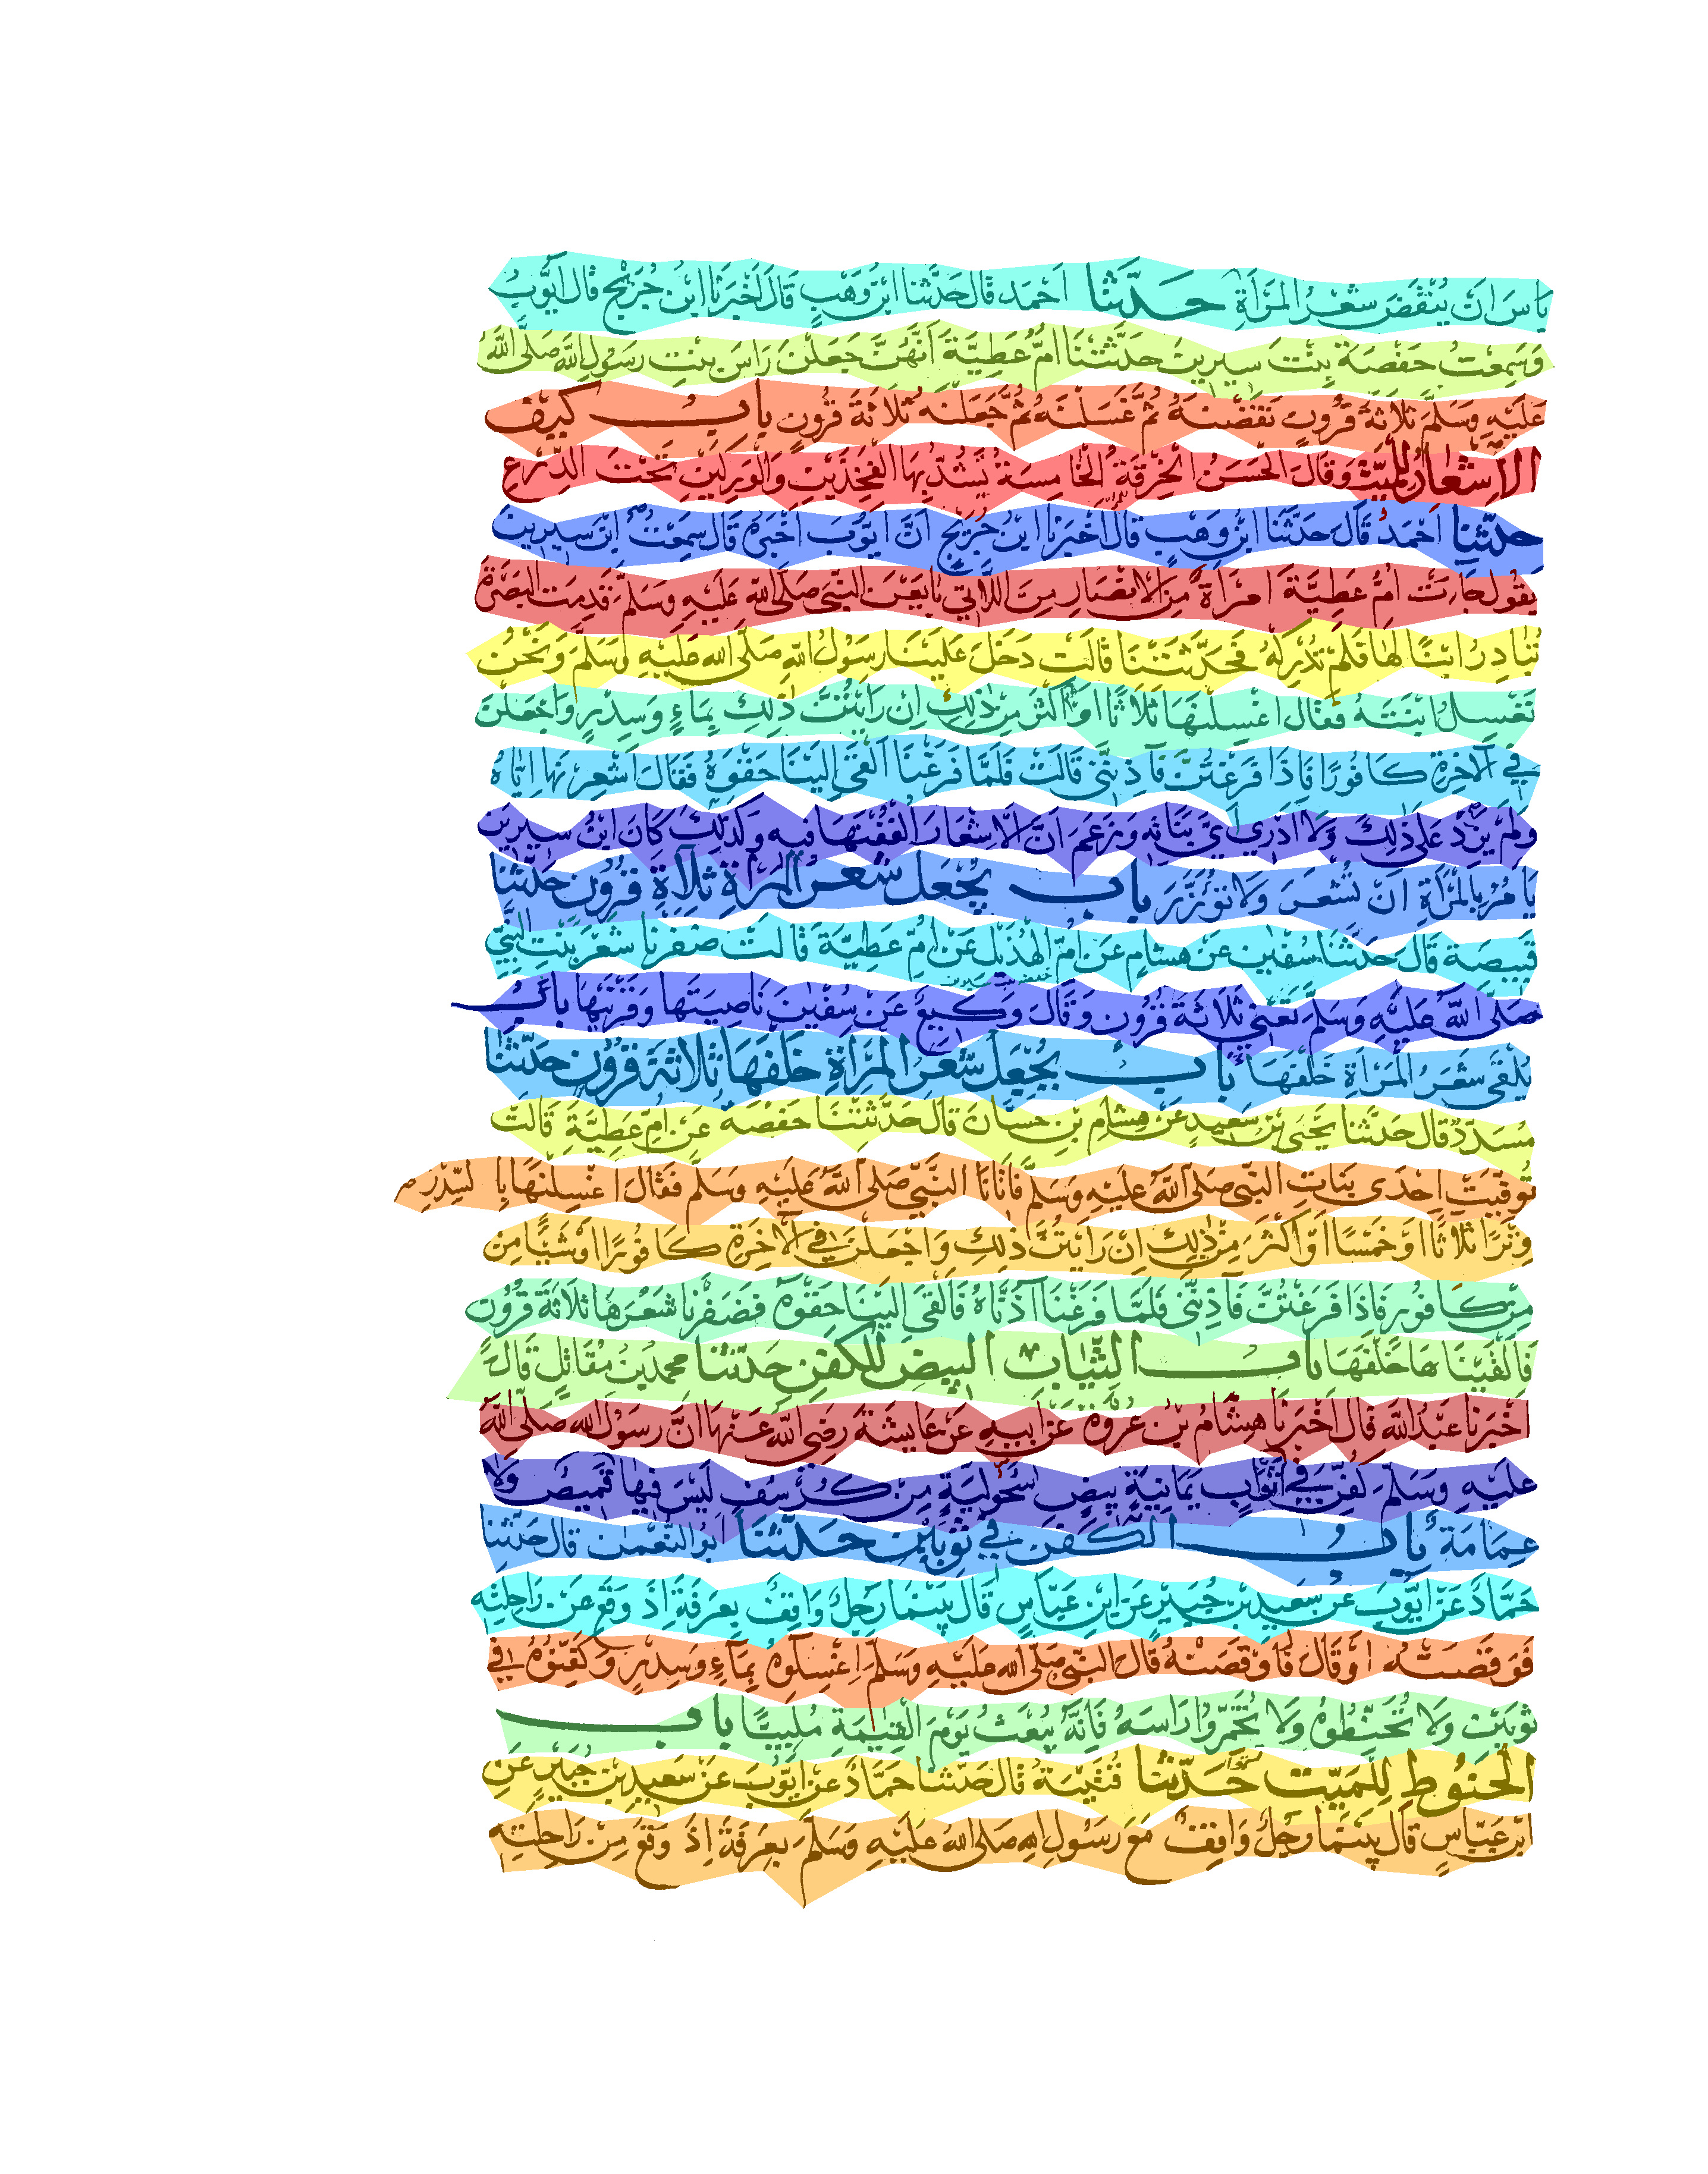 بَاسَ اَنْ يُنْقَضَ شَعْرُ الْمَرْاَةِ حَدَّثَنَا اَحْمَد قَالَ حَدَّثَنَا ابْنُ وَهْبٍ قَالَ اَخْبَرَنَا ابْنُ جُرَيْجٍ قَالَ اَيُّوبُ
وَسَمِعْتُ حَفْصَةَ بِنْتَ سِيرِينَ حَدَّثَتْنَا اُمُّ عَطِيَّةَ اَنَّهُنَّ جَعَلْنَ رَاسَ بِنْتِ رَسُولِ اللهِ صَلَّى اللهُ
عَلَيْهِ وَسَلَّمَ ثَلَاثَةَ قُرُونٍ نَقَضْنَهُ ثُمَّ غَسَلْنَهُ ثُمَّ جَعَلْنَهُ ثَلَاثَةَ قُرُونٍ بَابُ كَيْفَ
الْاِشْعَارُ لِلْمَيِّتِ وَقَالَ الْحَسَنُ الْخِرْقَةُ الْخَامِسَةُ يَشُدُّ بِهَا الْفَخِذَيْنِ وَالْوَرِكَيْنِ تَحْتَ الدِّرْعِ
حَدَّثَنَا اَحْمَدُ قَالَ حَدَّثَنَا ابْنُ وَهْبٍ قَالَ اَخْبَرَنَا ابْنُ جُرَيْجٍ اَنَّ اَيُّوبَ اَخْبَرَهُ قَالَ سَمِعْتُ ابْنَ سِيرِينَ
يَقُولُ جَاءَتْ اُمُّ عَطِيَّةَ امْرَاَةٌ مِنَ الْاَنْصَارِ مِنَ اللَّاتِي بَايَعْنَ النَّبِيَّ صَلَّى اللهُ عَلَيْهِ وَسَلَّمَ قَدِمَتِ الْبَصْرَةَ
تُبَادِرُ ابْنًا لَهَا فَلَمْ تُدْرِكْهُ فَحَدَّثَتْنَا قَالَتْ دَخَلَ عَلَيْنَا رَسُولُ اللهِ صَلَّى اللهُ عَلَيْهِ وَسَلَّمَ وَنَحْنُ
نَغْسِلُ ابْنَتَهُ فَقَالَ اغْسِلْنَهَا ثَلَاثًا اَوْ اَكْثَرَ مِنْ ذٰلِكَ اِنْ رَاَيْتُنَّ ذٰلِكَ بِمَاءٍ وَسِدْرٍ وَاجْعَلْنَ
فِي الْاٰخِرَةِ كَافُورًا فَاِذَا فَرَغْتُنَّ فَاٰذِنَّنِي قَالَتْ فَلَمَّا فَرَغْنَا اَلْقَى اِلَيْنَا حَقْوَهُ فَقَالَ اَشْعِرْنَهَا اِيَّاهُ
وَلَمْ يَزِدْ عَلَى ذٰلِكَ وَلَا اَدْرِي اَيُّ بَنَاتِهِ وَزَعَمَ اَنَّ الْاِشْعَارَ الْفُفْنَهَا فِيهِ وَكَذٰلِكَ كَانَ ابْنُ سِيرِينَ
يَامُرُ بِالْمَرْاَةِ اَنْ تُشْعَرَ وَلَا تُؤْزَرَ بَابُ يُجْعَلُ شَعْرُ الْمَرْاَةِ ثَلَاثَةَ قُرُونٍ حَدَّثَنَا
قَبِيصَةُ قَالَ حَدَّثَنَا سُفْيٰنُ عَنْ هِشَامٍ عَنْ اُمِّ الْهُذَيْلِ عَنْ اُمِّ عَطِيَّةَ قَالَتْ ضَفَرْنَا شَعْرَ بِنْتِ النَّبِيِّ
صَلَّى اللهُ عَلَيْهِ وَسَلَّمَ تَعْنِي ثَلَاثَةَ قُرُونٍ وَقَالَ وَكِيعٌ عَنْ سُفْيٰنَ نَاصِيَتَهَا وَقَرْنَيْهَا بَابُ
يُلْقَى شَعَرُ الْمَرْاَةِ خَلْفَهَا بَابُ يُجْعَلُ شَعَرُ الْمَرْاَةِ خَلْفَهَا ثَلَاثَةَ قُرُونٍ حَدَّثَنَا
مُسَدَّدٌ قَالَ حَدَّثَنَا يَحْيَى بْنُ سَعِيدٍ عَنْ هِشَامِ بْنِ حَسَّانَ قَالَ حَدَّثَتْنَا حَفْصَةُ عَنْ اُمِّ عَطِيَّةَ قَالَتْ
تُوُفِّيَتْ اِحْدَى بَنَاتِ النَّبِيِّ صَلَّى اللهُ عَلَيْهِ وَسَلَّمَ فَاَتَانَا النَّبِيُّ صَلَّى اللهُ عَلَيْهِ وَسَلَّمَ فَقَالَ اغْسِلْنَهَا بِالسِّدْرِ
وِتْرًا ثَلَاثًا اَوْ خَمْسًا اَوْ اَكْثَرَ مِنْ ذٰلِكَ اِنْ رَاَيْتُنَّ ذٰلِكَ وَاجْعَلْنَ فِي الْاٰخِرَةِ كَافُورًا اَوْ شَيْئًا مِنْ
مِنْ كَافُورٍ فَاِذَا فَرَغْتُنَّ فَاٰذِنَّنِي فَلَمَّا فَرَغْنَا اٰذَنَّاهُ فَاَلْقَى اِلَيْنَا حَقْوَهُ فَضَفَرْنَا شَعْرَهَا ثَلَاثَةَ قُرُونٍ
فَاَلْقَيْنَاهَا خَلْفَهَا بَابُ الثِّيَابِ الْبِيضِ لِلْكَفَنِ حَدَّثَنَا مُحَمَّدُ بْنُ مُقَاتِلٍ قَالَ
اَخْبَرَنَا عَبْدُ اللهِ قَالَ اَخْبَرَنَا هِشَامُ بْنُ عُرْوَةَ عَنْ اَبِيهِ عَنْ عَايِشَةَ رَضِيَ اللهُ عَنْهَا اَنَّ رَسُولَ اللهِ صَلَّى اللهُ
عَلَيْهِ وَسَلَّمَ كُفِّنَ فِي اَثْوَابٍ يَمَانِيَةٍ بِيضٍ سَحُولِيَّةٍ مِنْ كُرْسُفٍ لَيْسَ فِيهَا قَمِيصٌ وَلَا
عِمَامَةٌ بَابُ الْكَفَنِ فِي ثَوْبَيْنِ حَدَّثَنَا اَبُو النُّعْمٰنِ قَالَ حَدَّثَنَا
حَمَّادٌ عَنْ اَيُّوبَ عَنْ سَعِيدِ بْنِ جُبَيْرٍ عَنِ ابْنِ عَبَّاسٍ قَالَ بَيْنَمَا رَجُلٌ وَاقِفٌ بِعَرَفَةَ اِذْ وَقَعَ عَنْ رَاحِلَتِهِ
فَوَقَصَتْهُ اَوْ قَالَ فَاَوْقَصَتْهُ قَالَ النَّبِيُّ صَلَّى اللهُ عَلَيْهِ وَسَلَّمَ اغْسِلُوهُ بِمَاءٍ وَسِدْرٍ وَكَفِّنُوهُ فِي
ثَوْبَيْنِ وَلَا تُحَنِّطُوهُ وَلَا تُخَمِّرُوا رَاسَهُ فَاِنَّهُ يُبْعَثُ يَوْمَ الْقِيٰمَةِ مُلَبِّيًا بَابُ
الْحَنُوطِ لِلْمَيِّتِ حَدَّثَنَا قُتَيْبَةُ قَالَ حَدَّثَنَا حَمَّادٌ عَنْ اَيُّوبَ عَنْ سَعِيدِ بْنِ جُبَيْرٍ عَنِ
ابْنِ عَبَّاسٍ قَالَ بَيْنَمَا رَجُلٌ وَاقِفٌ مَعَ رَسُولِ اللهِ صَلَّى اللهُ عَلَيْهِ وَسَلَّمَ بِعَرَفَةَ اِذْ وَقَعَ مِنْ رَاحِلَتِهِ